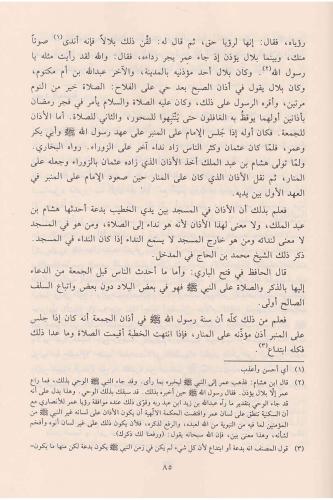 رؤياه، فقال: إنها لرؤيا حق، ثم قال له: لقّن ذلك بلالاً فإنه أندى(١) صوتاً
منك، وبينما بلال يؤذن إذ جاء عمر يجر رداءه، فقال: والله لقد رأيت مثله يا
رسول الله(٢). وكان بلال أحد مؤذنيه بالمدينة، والآخر عبدالله بن أم مكتوم،
وكان بلال يقول في أذان الصبح بعد حي على الفلاح: الصلاة خير من النوم
مرتين، وأقره الرسول على ذلك، وكان عليه الصلاة والسلام يأمر في فجر رمضان
بأذانين أولهما يوقظ به الغافلون حتى يتنبهوا للسحور، والثاني للصلاة. أما الأذان
للجمعة، فكان أوله إذا جلس الإمام على المنبر على عهد رسول الله ﷺ وأبي بكر
وعمر، فلمّا كان عثمان وكثر الناس زاد نداء آخر على الزوراء. رواه البخاري.
ولمّا تولى هشام بن عبد الملك أخذ الأذان الذي زاده عثمان بالزوراء وجعله على
المنار، ثم نقل الأذان الذي كان على المنار حين صعود الإمام على المنبر في
العهد الأول بين يديه.
فعلم بذلك أن الأذان في المسجد بين يدي الخطيب بدعة أحدثها هشام بن
عبد الملك، ولا معنى لهذا الأذان لأنه هو نداء إلى الصلاة، ومن هو في المسجد
لا معنى لندائه ومن هو خارج المسجد لا يسمع النداء إذا كان النداء في المسجد.
ذكر ذلك الشيخ محمد بن الحاج في المدخل.
قال الحافظ في فتح الباري: وأما ما أحدث الناس قبل الجمعة من الدعاء
إليها بالذكر والصلاة على النبي ﷺ فهو في بعض البلاد دون بعض واتباع السلف
الصالح أولى.
فعلم من ذلك كله أن سنة رسول الله ﷺ في أذان الجمعة أنه كان إذا جلس
على المنبر أذن مؤذنه على المنار، فإذا انتهت الخطبة أقيمت الصلاة وما عدا ذلك
فكله ابتداع(٣).
(١) أي أحسن وأعذب
(٢) قال ابن هشام: فذهب عمر إلى النبي ﷺ ليخبره بما رأى. وقد جاء النبي ﷺ الوحي بذلك، فما راع
عمر إلا بلال يؤذن. فقال رسول الله ﷺ حين أخبره بذلك. قد سبقك بذلك الوحي. وهذا يدل على أنه
(٣) قول المصنف انه بدعة أو ابتداع لأن كل شيء لم يكن في زمن النبي ﷺ يكون بدعة لكن منها ما يكون=
٨٥